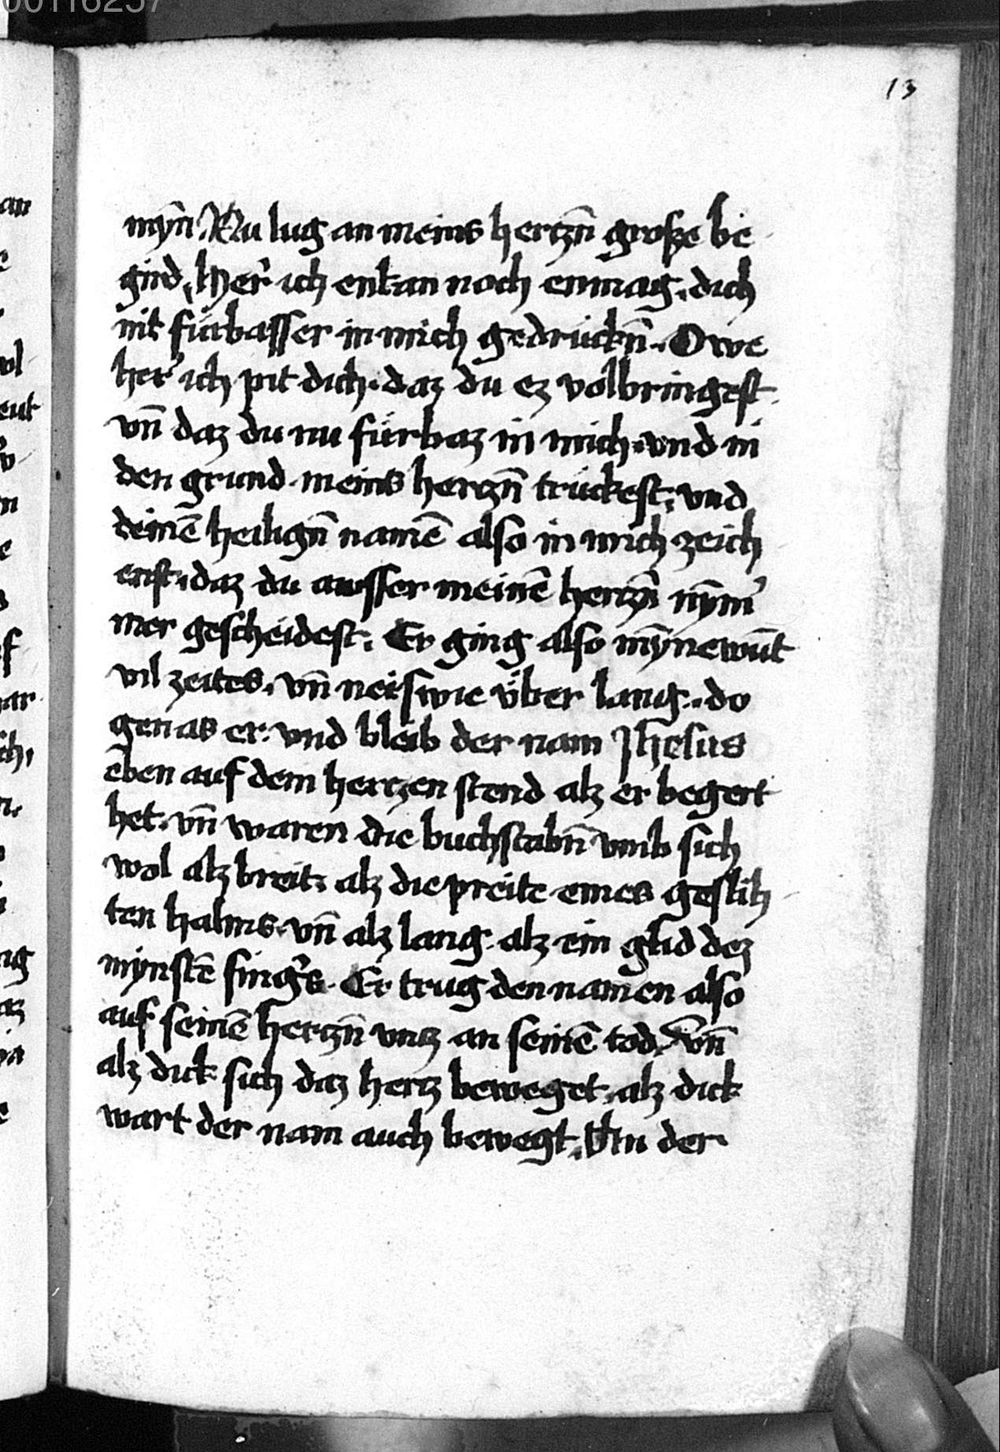 00116257
13
myn̄. Nu lug an meins hertzn̄ grosze be
gird, Her̓ ich enkan noch enmag, dich
nit fürbasser in mich gedrückn̄. Owe
her̓ ich pit dich. daz du ez volbringest
vn̄ daz du nu fürbaz in mich. vnd in
den grund. meins hertzn̄ trückest, vnd
deinē heilign̄ namē also in mich zeich
enst, daz du awsser meinē hertzn̄ nȳm̓
mer gescheidest. Er ging also mȳnewūt
vil zeites, vn̄ neiswie v̈ber lang. do
genas er. vnd bleib der nam Jhesus
eben auf dem hertzen stend alz er begert
het. vn̄ waren die buchstabn̄ vmb sich
wol alz breit. alz die preite eines geslih
ten halms. vn̄ alz lang alz ein glid dez
mynstē fing̓s. Er trug den namen also
auf seinē hertzn̄ vntz an seinē tod. Vn̄
alz dick sich daz hertz beweget. alz dick
wart der nam auch bewegt. Vn der